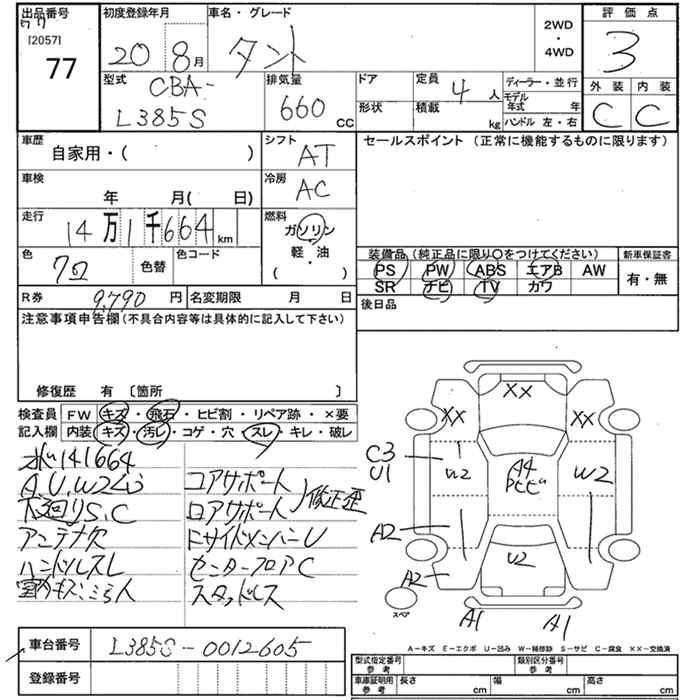 出品番号 初度登録年月 車名・グレード 評価点
[2057] 2WD
77 20 8月 タント ・ 3
4WD
型式 排気量 ドア 定員 4人 ディーラー・並行 外装 内装
CBA- モデル年式 年
L385S 660 CC 形状 積載 kg ハンドル 左・右 C C
車歴 シフト セールスポイント (正常に機能するものに限ります)
自家用・( ) AT
車検 冷房
年 月( 日) AC
走行 燃料
14万1千664km ガソリン
軽・油
・
( )
色 色替 色コード 装備品(純正品に限り○をつけてください) 新車保証書
PS PW ABS エアB AW 有・無
SR ナビ TV カワ
R券 9,790円 名変期限 月 日 後日品
注意事項申告欄(不具合内容等は具体的に記入して下さい)
修復歴 有 〔箇所 〕
検査員 FW キズ・飛石・ヒビ割・リペア跡・×要
記入欄 内装 キズ・汚レ・コゲ・穴・スレ・キレ・破レ
141664
A.U.W2 コアサポート
下廻りS.C ロアサポート 修正歪
アンテナ欠 サイドメンバーU
ハンドルスレ センターフロアC
室内キズ スタッドレス
XX
XX XX
C3
U1 W2 A4 W2
A2
A2 U2
スペア
A1 A1
車台番号 L385S-0012605
登録番号
A-キズ E-エクボ U-凹み W-補修跡 S-サビ C-腐食 XX-交換済
型式指定番号 参考 類別区分番号 参考
車庫証明用 参考 長さ cm 幅 cm 高さ cm